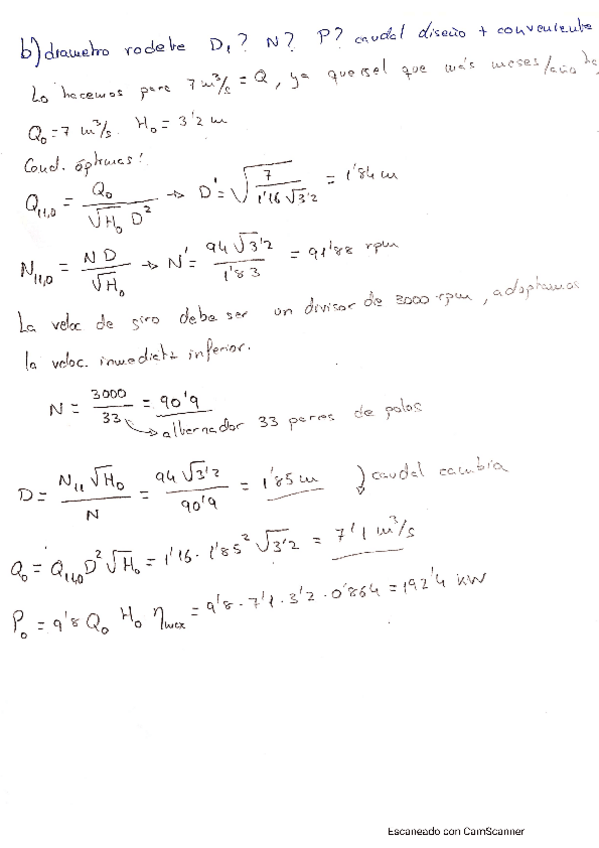 b) diametro rodete D₁? N? P? caudal diseño + conveniente
Lo hacemos para 7 m³/s = Q, ya que es el que más meses/año
Q₀ = 7 m³/s. H₀ = 3'2 m
Cond. óptimas:
Q₁₁,₀ = Q₀ / (√H₀ D²) → D' = √(7 / (1'16 √3'2)) = 1'84 m
N₁₁,₀ = N D / √H₀ → N' = 94 √3'2 / 1'83 = 91'88 rpm
La veloc de giro debe ser un divisor de 3000 rpm, adoptamos
la veloc. inmediata inferior.
N = 3000 / 33 = 90'9
→ alternador 33 pares de polos
D = N₁₁ √H₀ / N = 94 √3'2 / 90'9 = 1'85 m ) caudal cambia
Q₀ = Q₁₁,₀ D² √H₀ = 1'16 · 1'85² √3'2 = 7'1 m³/s
P₀ = 9'8 Q₀ H₀ ηmax = 9'8 · 7'1 · 3'2 · 0'864 = 192'4 kW
Escaneado con CamScanner